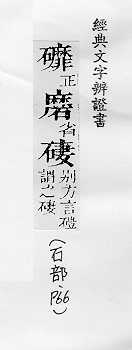 經典文字辨證書
䃺正磨省
别方言磑
謂之
(石部.P66)